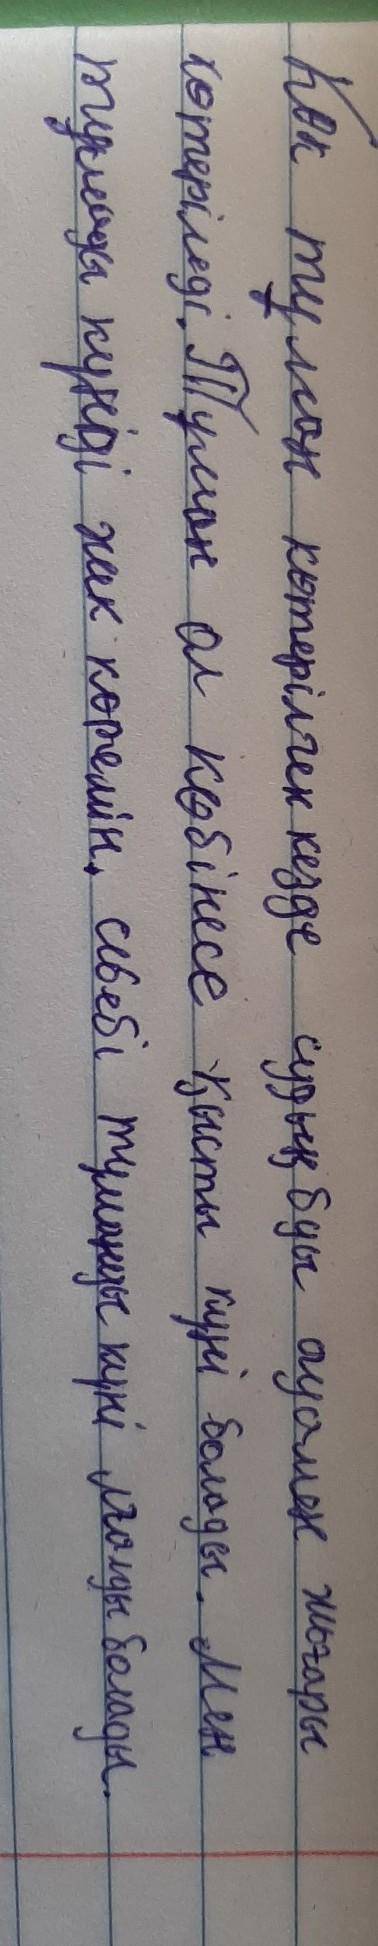 Көк тұман көтерілген кезде судың буы ауамен жоғары
көтеріледі. Тұман ол көбінесе қысты күні болады. Мен
тұманды күнді жек көремін, себебі тұманды күні ылғалды болады.